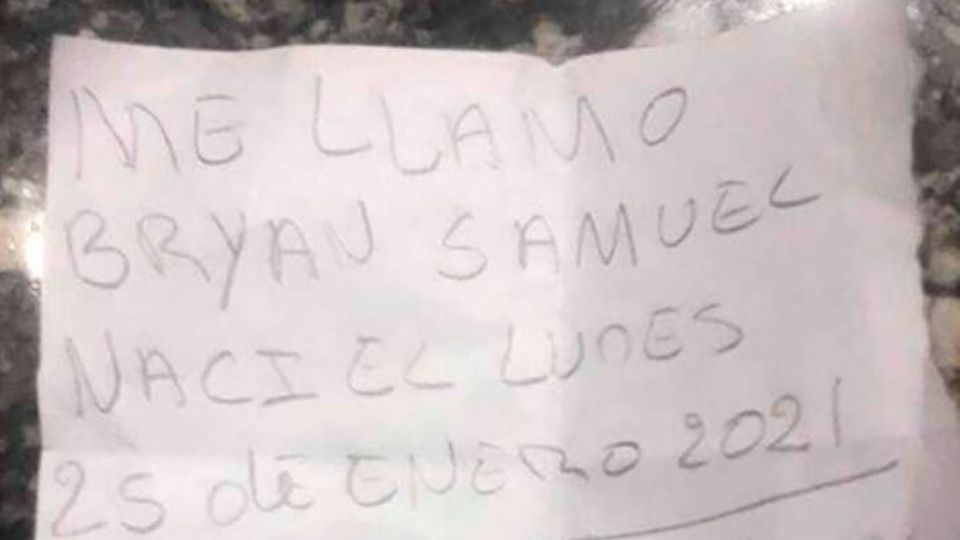 ME LLAMO
BRYAN SAMUEL
NACI EL LUNES
25 de ENERO 2021